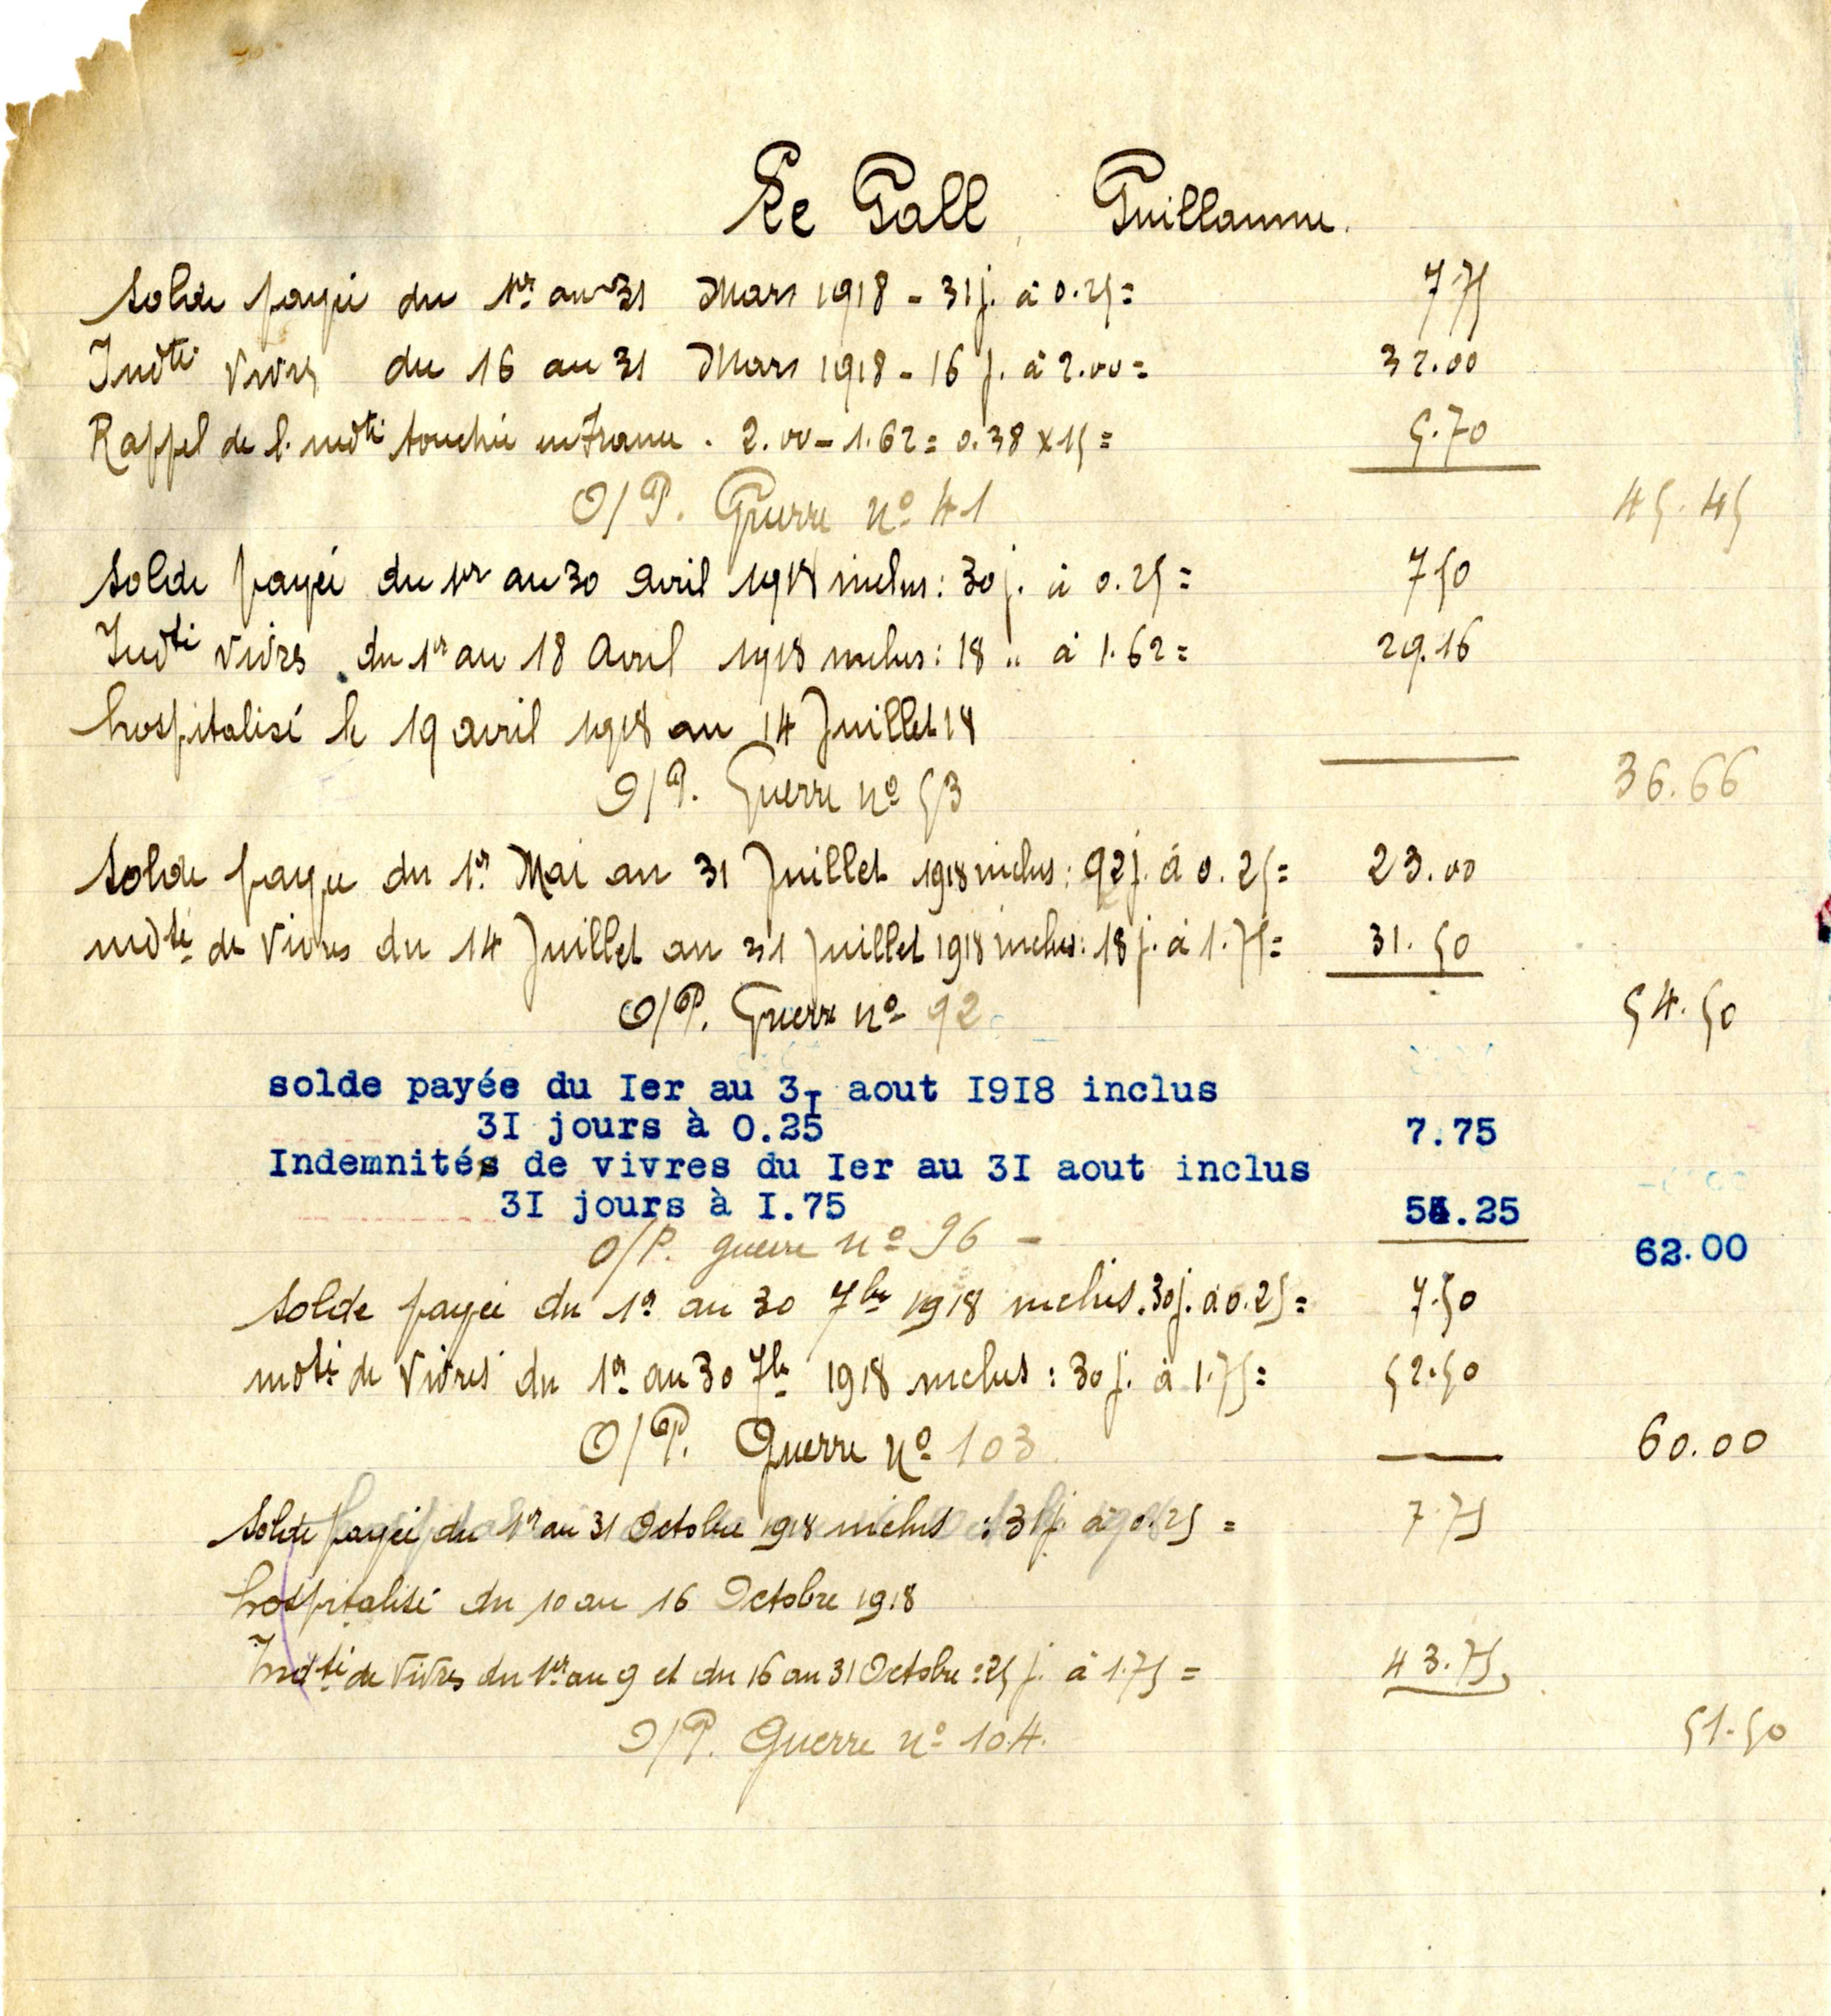 Le Gall Guillaume.
Solde payée du 1er au 31 Mars 1918 - 31 j. à 0.25 = 7.75
Indté vivres du 16 au 31 Mars 1918 - 16 j. à 2.00 = 32.00
Rappel de l. indté touchée en France . 2.00 - 1.62 = 0.38 x 15 = 5.70
O/P. Guerre No 41 45.45
Solde payée du 1er au 30 avril 1918 inclus : 30 j. à 0.25 = 7.50
Indté vivres du 1er au 18 Avril 1918 inclus : 18 " à 1.62 = 29.16
hospitalisé le 19 avril 1918 au 14 Juillet 18
O/P. Guerre No 53 36.66
Solde payée du 1er Mai au 31 Juillet 1918 inclus : 92 j. à 0.25 = 23.00
indté de Vivres du 14 Juillet au 31 Juillet 1918 inclus : 18 j. à 1.75 = 31.50
O/P. Guerre No 92 54.50
solde payée du Ier au 3I aout I9I8 inclus
3I jours à 0.25 7.75
Indemnités de vivres du Ier au 3I aout inclus
3I jours à I.75 54.25
O/P. guerre No 96 - 62.00
Solde payée du 1er au 30 7bre 1918 inclus . 30 j. à 0.25 = 7.50
indté de Vivres du 1er au 30 7bre 1918 inclus : 30 j. à 1.75 = 52.50
O/P. Guerre No 103 60.00
Solde payée du 1er au 31 Octobre 1918 inclus : 31 j. à 0.25 = 7.75
hospitalisé du 10 au 16 Octobre 1918
Indté de Vivres du 1er au 9 et du 16 au 31 Octobre : 25 j. à 1.75 = 43.75
O/P. Guerre No 104. 51.50